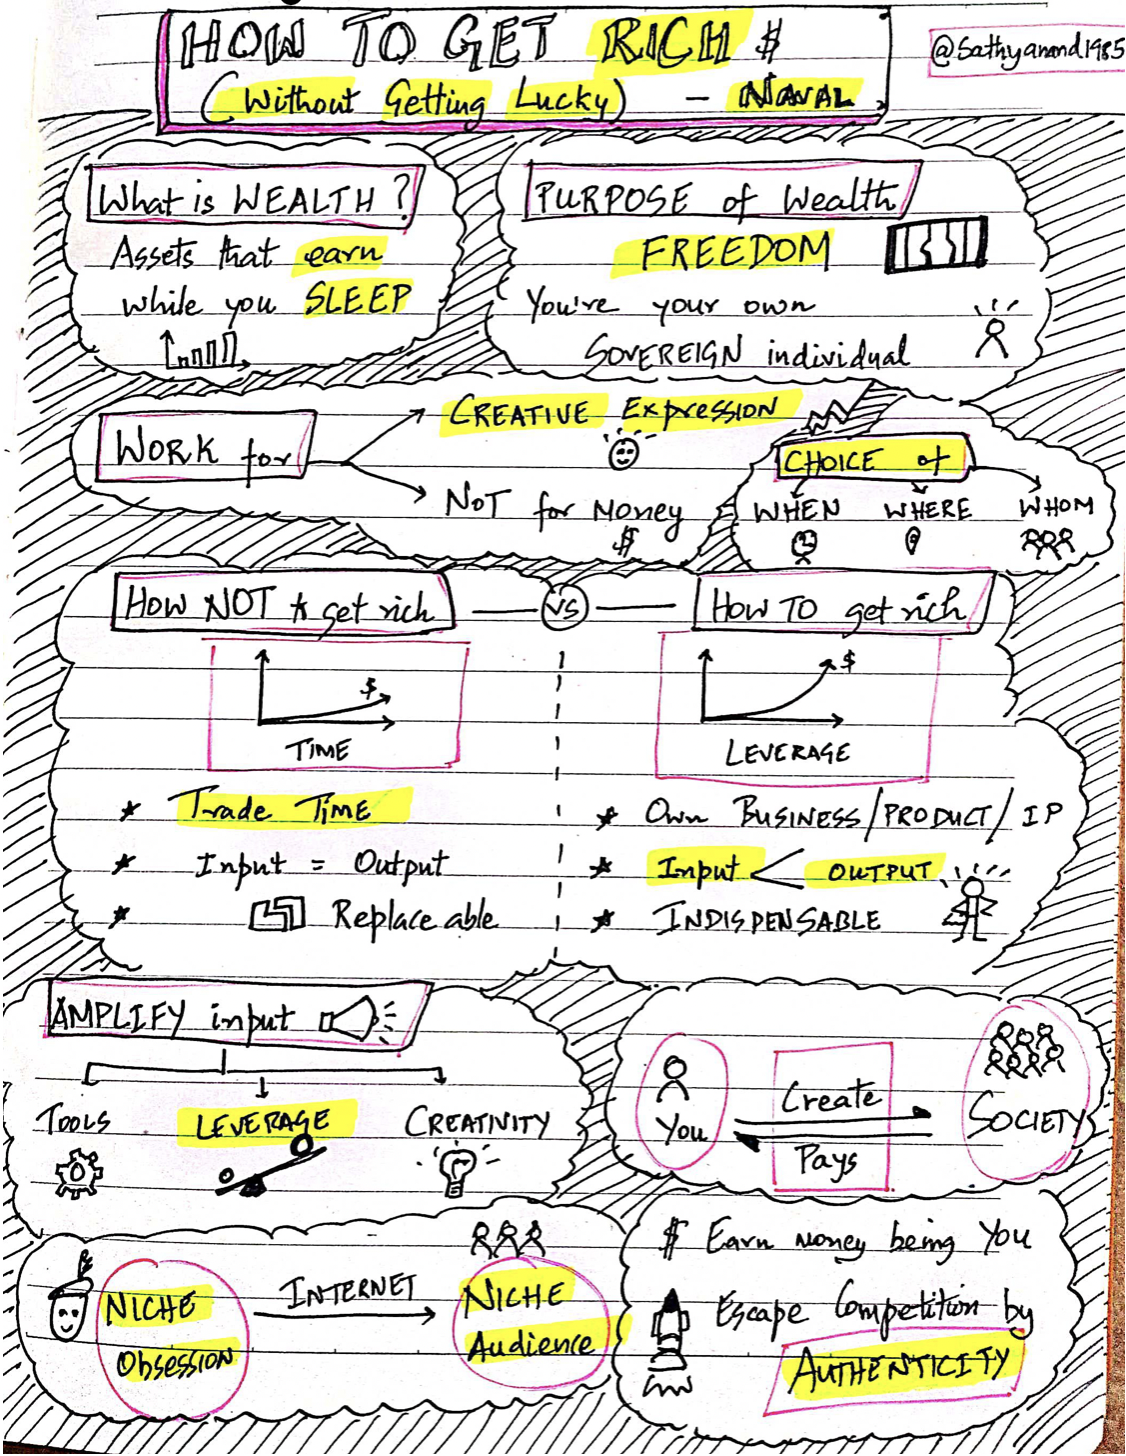 HOW TO GET RICH $
(Without Getting Lucky) - NAVAL
@Sathyanand1985
What is WEALTH?
Assets that earn
while you SLEEP
PURPOSE of Wealth
FREEDOM
You're your own
SOVEREIGN individual
WORK for
CREATIVE Expression
NOT for Money
$
CHOICE of
WHEN WHERE WHOM
How NOT to get rich
VS
How TO get rich
$
TIME
$
LEVERAGE
* Trade Time
* Input = Output
* Replaceable
* Own BUSINESS/PRODUCT/IP
* Input < OUTPUT
* INDISPENSABLE
AMPLIFY input
TOOLS
LEVERAGE
CREATIVITY
You
Create
Pays
SOCIETY
NICHE
Obsession
INTERNET
NICHE
Audience
$ Earn money being You
Escape Competition by
AUTHENTICITY